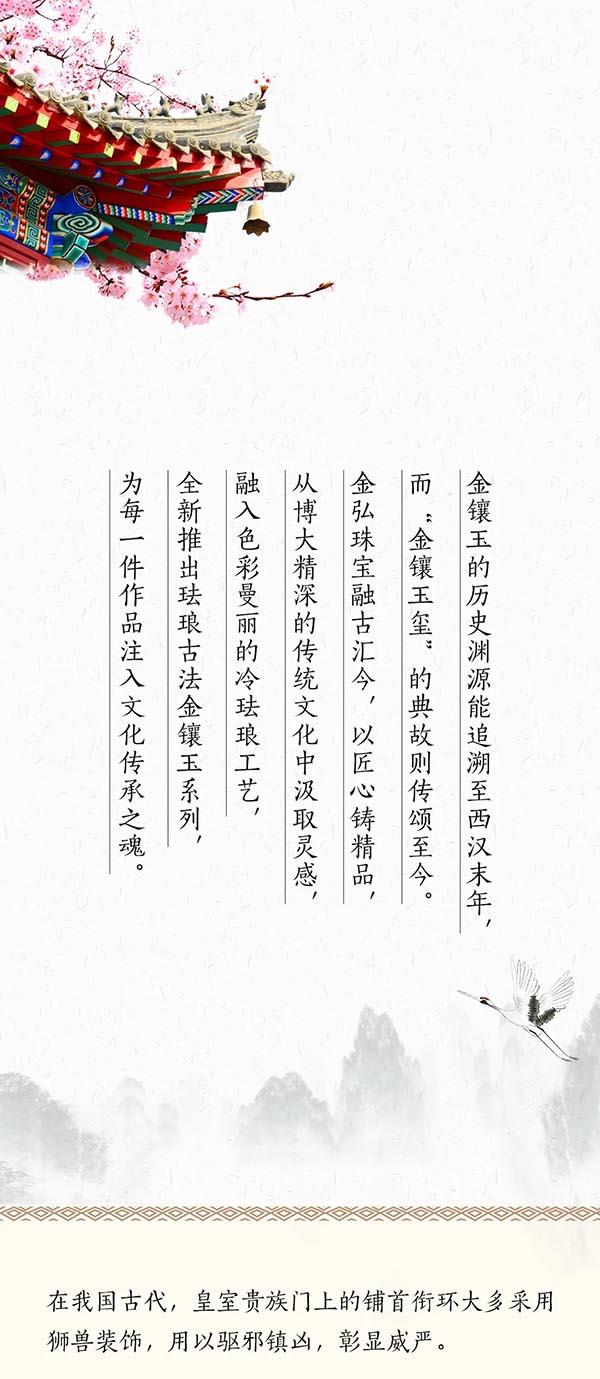 金镶玉的历史渊源能追溯至西汉末年，
而“金镶玉玺”的典故则传颂至今。
金弘珠宝融古汇今，以匠心铸精品，
从博大精深的传统文化中汲取灵感，
融入色彩曼丽的冷珐琅工艺，
全新推出珐琅古法金镶玉系列，
为每一件作品注入文化传承之魂。
在我国古代，皇室贵族门上的铺首衔环大多采用
狮兽装饰，用以驱邪镇凶，彰显威严。